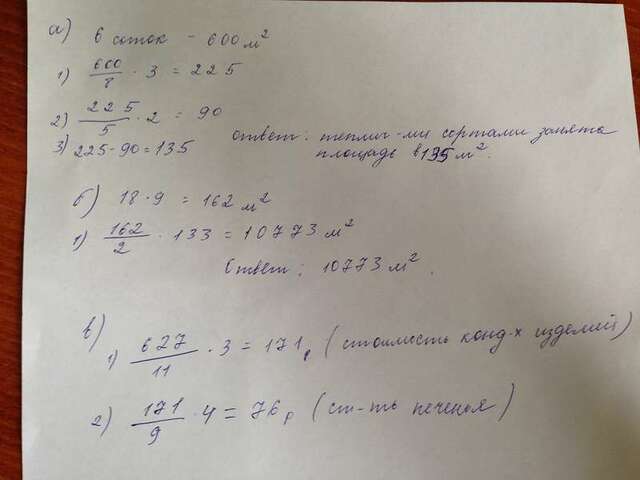 а) 6 соток - 600 м²
1) 600/8 · 3 = 225
2) 225/5 · 2 = 90
3) 225-90=135
ответ: теплич-ми сортами занята площадь в 135 м².
б) 18 · 9 = 162 м²
1) 162/2 · 133 = 10773 м²
Ответ: 10773 м².
в)
1) 627/11 · 3 = 171 р (стоимость конд-х изделий)
2) 171/9 · 4 = 76 р (ст-ть печенья)